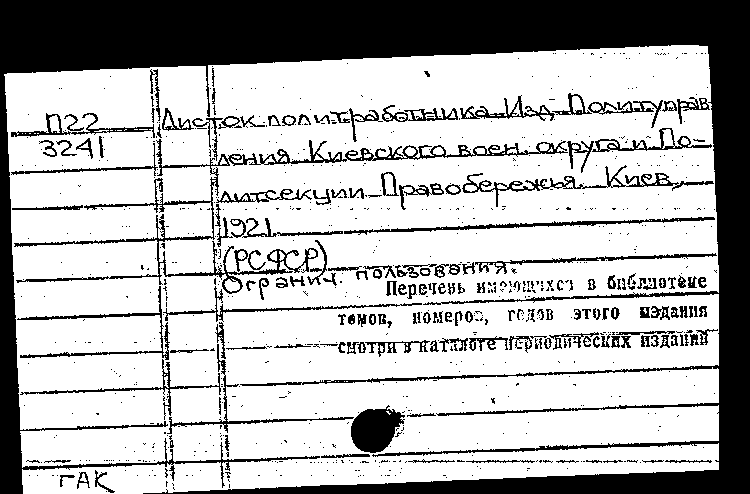 П22
3241
Листок политработника. Изд. Политуправ
ления Киевского воен. округа и По-
литсекции Правобережья. Киев,
1921.
(РСФСР)
Огранич. пользования.
Перечень имеющихся в библиотеке
томов, номеров, годов этого издания
смотри в каталоге периодических изданий
ГАК